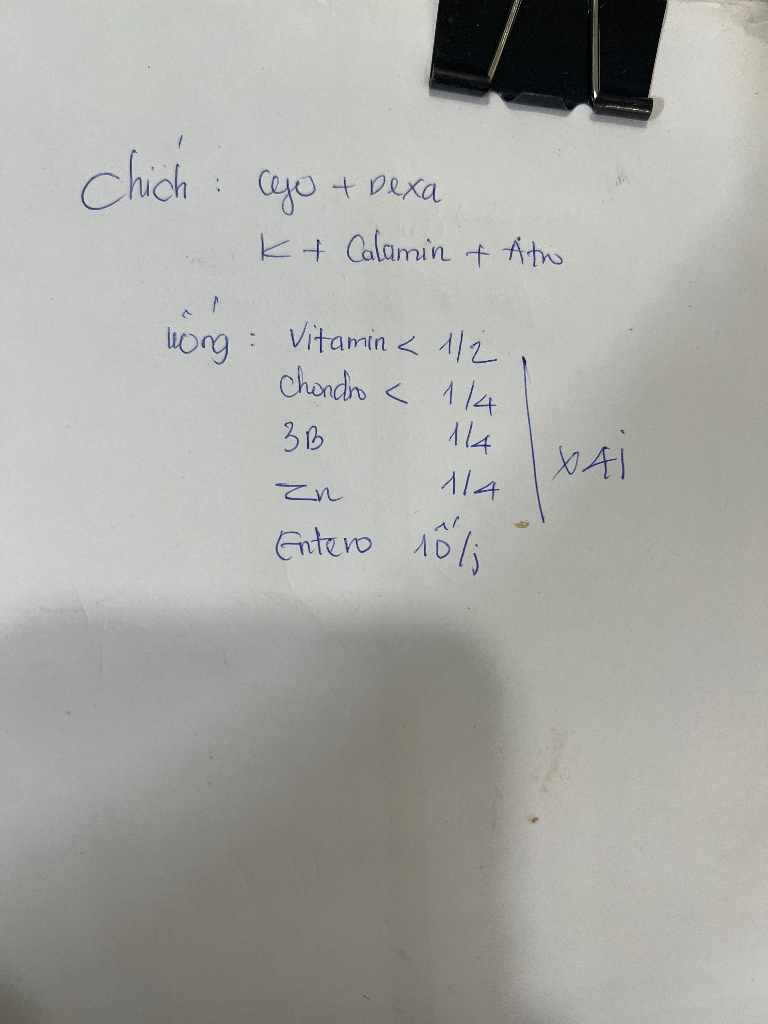 Chích : Cefo + Dexa
K + Calamin + Atro
uống : Vitamin < 1/2
Chondro < 1/4
3B 1/4
Zn 1/4
x4j
Entero 1ố/j